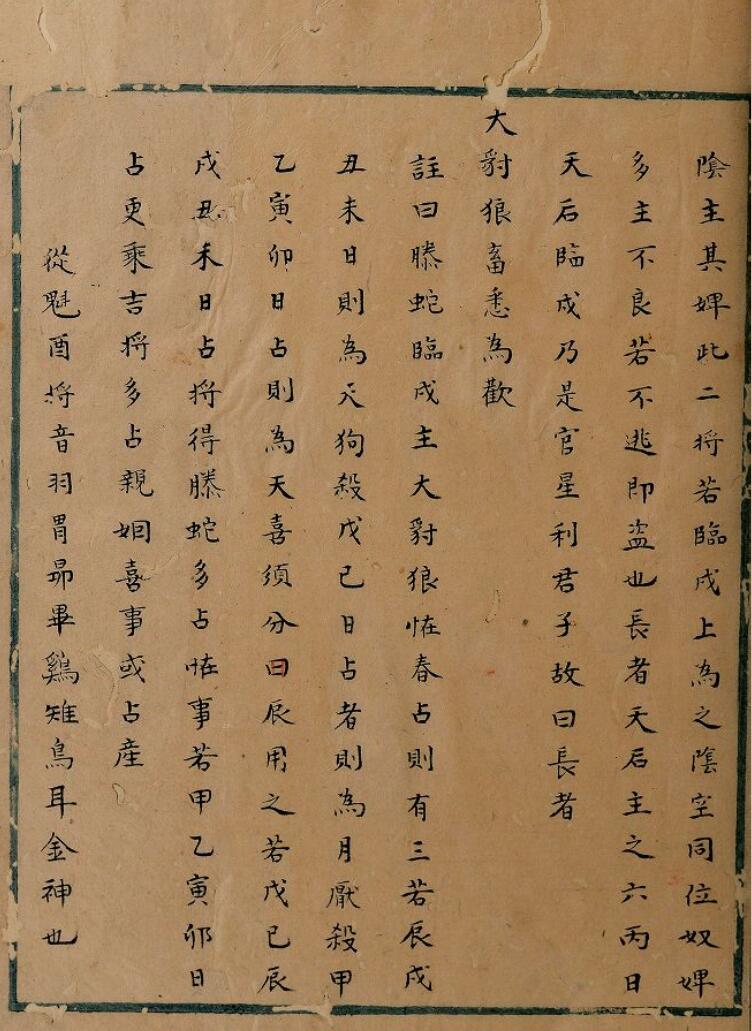 陰主其婢此二将若臨戌上為之陰空同位奴婢
多主不良若不逃即盗也長者天后主之六丙日
天后臨戌乃是官星利君子故曰長者
犬豺狼畜悉為歡
註曰螣蛇臨戌主犬豺狼恠春占則有三若辰戌
丑未日則為天狗殺戊己日占者則為月厭殺甲
乙寅卯日占則為天喜須分曰辰用之若戊己辰
戌丑未日占将得螣蛇多占恠事若甲乙寅卯日
占更乘吉将多占親姻喜事或占産
從魁酉将音羽胃昴畢鷄雉鳥耳金神也